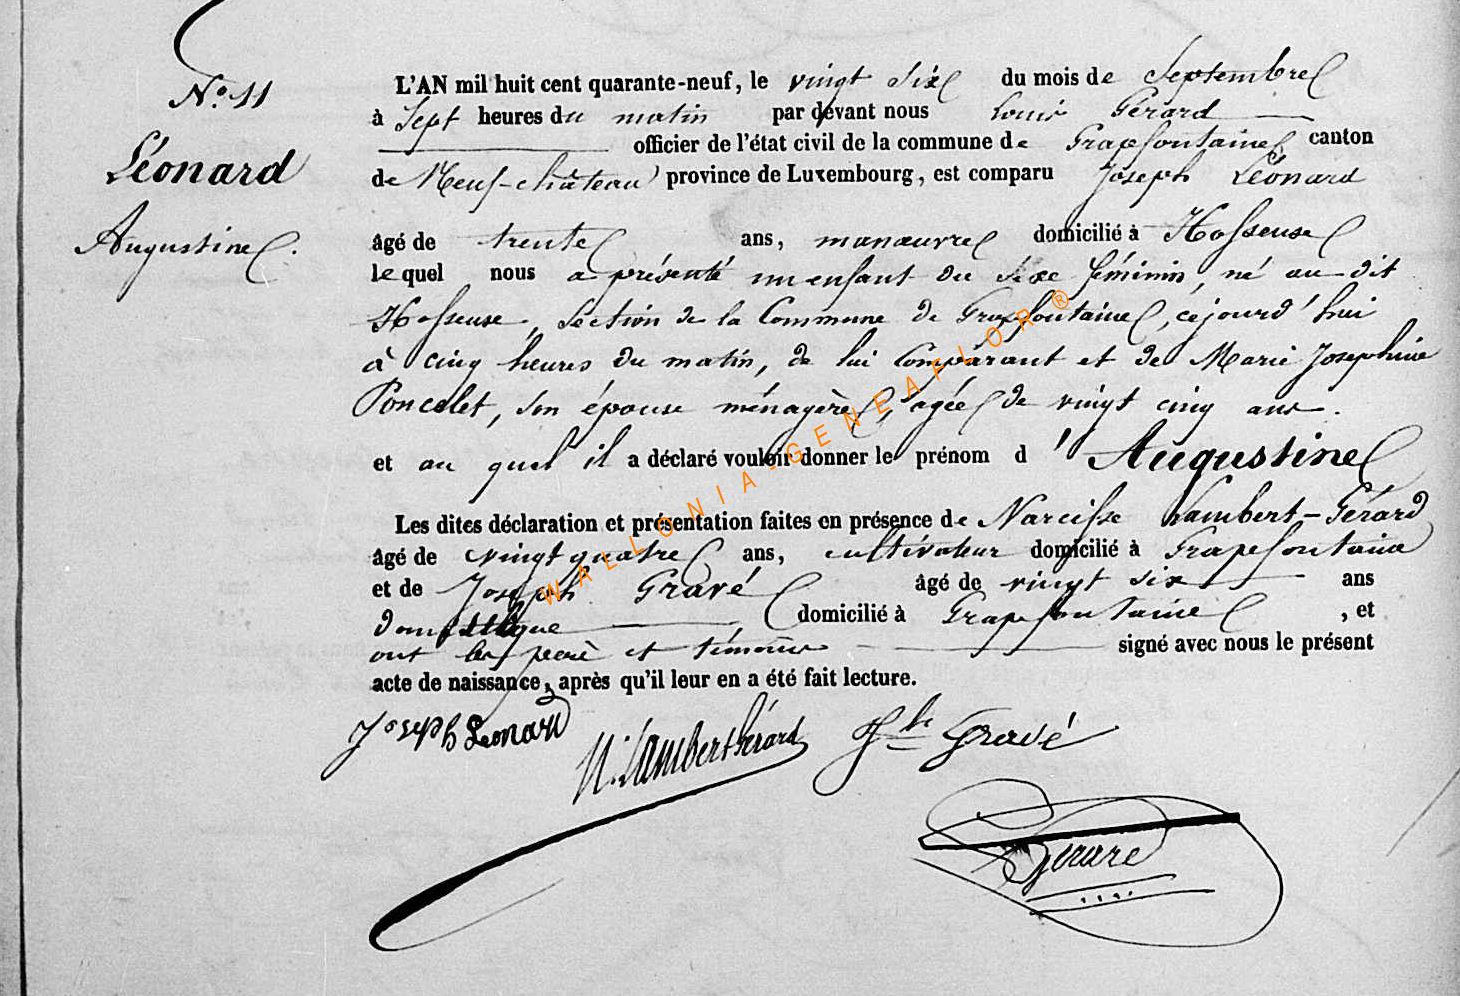 N.o 11
Léonard
Augustine.
L'AN mil huit cent quarante-neuf, le vingt six du mois de Septembre
à Sept heures du matin par devant nous Louis Gérard
officier de l'état civil de la commune de Grapfontaine canton
de Neuf-château province de Luxembourg, est comparu Joseph Léonard
âgé de trente ans, manœuvre domicilié à Hosseuse
lequel nous a présenté un enfant du sexe féminin, né au dit
Hosseuse, section de la Commune de Grapfontaine, cejourd'hui
à cinq heures du matin, de lui Comparant et de Marie Josephine
Poncelet, son épouse ménagère, agée de vingt cinq ans.
et au quel il a déclaré vouloir donner le prénom d'Augustine
Les dites déclaration et présentation faites en présence de Narcisse Lambert-Gérard
âgé de vingt quatre ans, cultivateur domicilié à Grapefontaine
et de Joseph Gravé âgé de vingt six ans
domestique domicilié à Grapfontaine, et
ont les père et témoins signé avec nous le présent
acte de naissance, après qu'il leur en a été fait lecture.
Joseph Leonard
N. Lambert Gérard
Jph Gravé
Gérard
WALLONIA-GENEAFLOR®